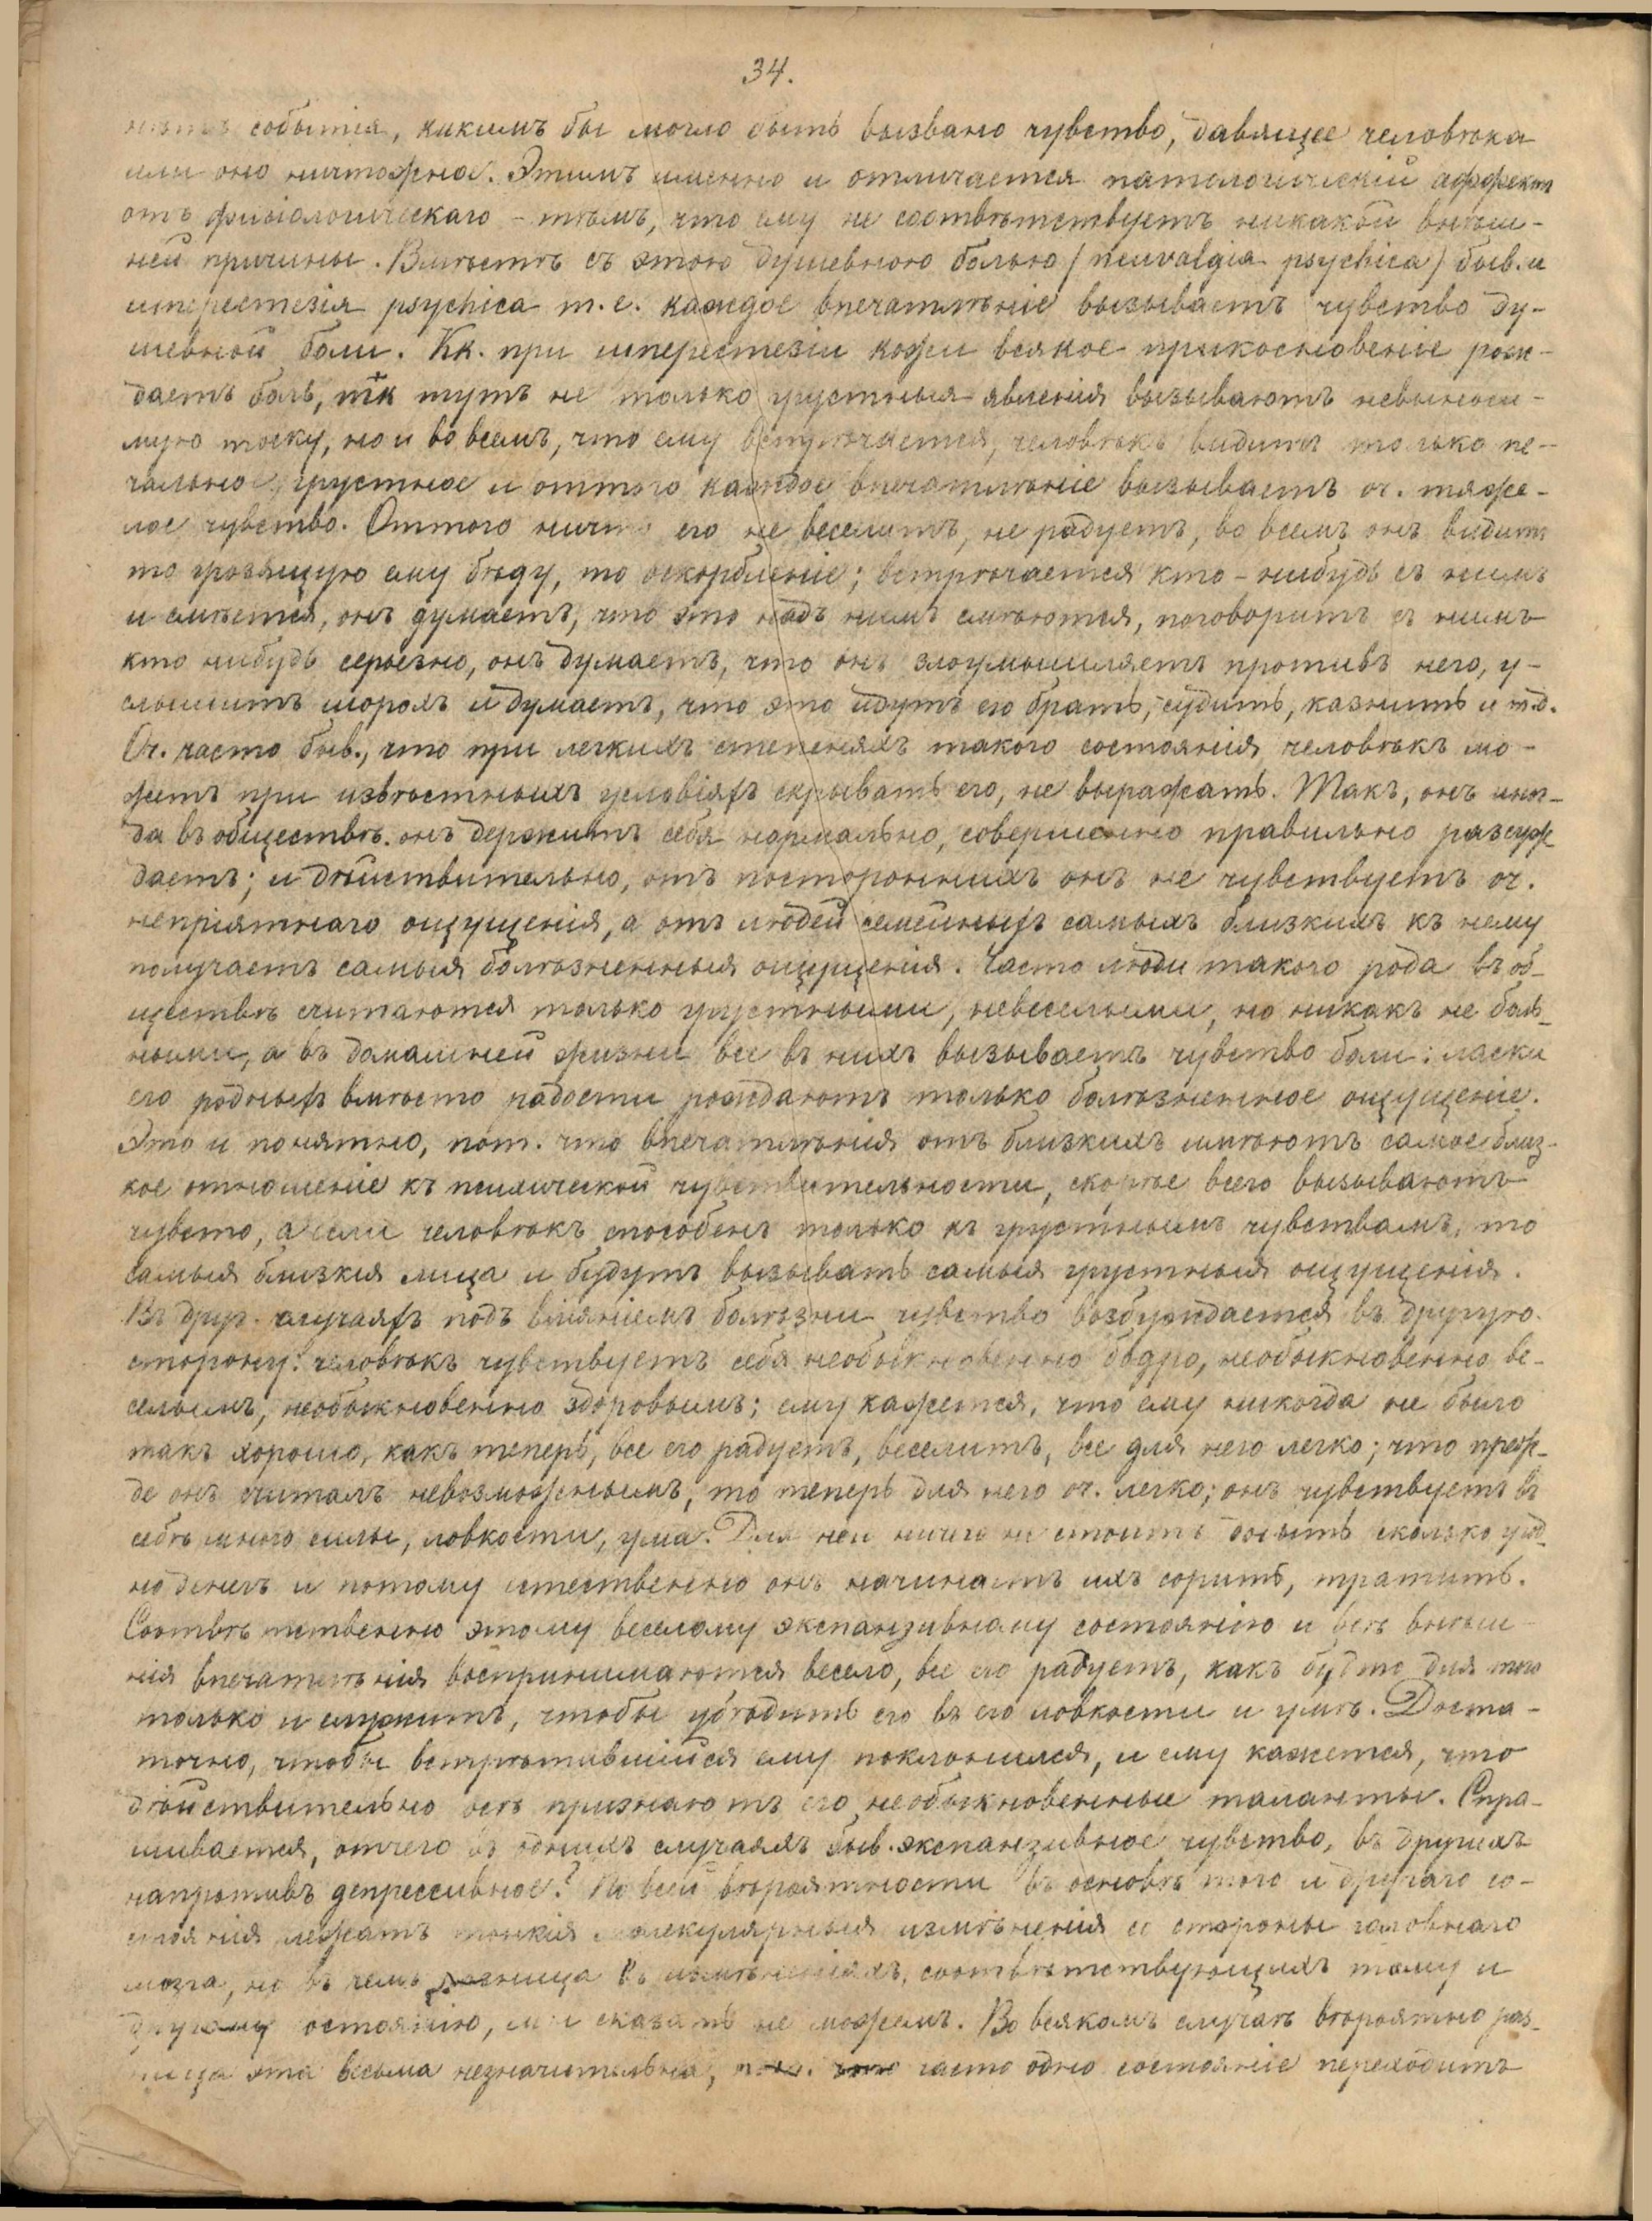 34.
событія, какимъ бы могло быть вызвано чувство, давящее человѣка
или оно ничтожно. Этимъ именно и отличается патологическій аффектъ
отъ физіологическаго – тѣмъ, что ему не соотвѣтствуетъ никакой внѣш-
ней причины. Вмѣстѣ съ этою душевною болью (neuralgia psychica) быв. и
гиперестезія psychica т. е. каждое впечатлѣніе вызываетъ чувство ду-
шевной боли. Кк. при гиперестезіи кожи всякое прикосновеніе рож-
даетъ боль, тк тутъ не только грустныя явленія вызываютъ невыноси-
мую тоску, но и во всемъ, что ему встрѣчается, человѣкъ видитъ только пе-
чальное грустное и оттого каждое впечатлѣніе вызываетъ оч. тяже-
лое чувство. Оттого ничто его не веселитъ, не радуетъ, во всемъ онъ видитъ
то грозящую ему бѣду, то оскорбленіе; встрѣчается кто-нибудь съ нимъ
и смѣется, онъ думаетъ, что это надъ нимъ смѣются, поговоритъ съ нимъ
кто нибудь серьезно, онъ думаетъ, что онъ злоумышляетъ противъ него, у-
слышитъ шорохъ и думаетъ, что это идутъ его брать, судить, казнить и т.д.
Оч. часто быв., что при легкихъ степеняхъ такого состоянія человѣкъ мо-
жетъ при извѣстныхъ условіяхъ скрывать его, не выражать. Такъ, онъ иног-
да въ обществѣ. онъ держитъ себя нормально, совершенно правильно разсуж
даетъ; и дѣйствительно, отъ постороннихъ онъ не чувствуетъ оч.
непріятнаго ощущенія, а отъ людей семейныхъ самыхъ близкихъ къ нему
получаетъ самыя болѣзненныя ощущенія. Часто люди такого рода въ об-
ществѣ считаются только грустными, невеселыми, но никакъ не боль-
ными, а въ домашней жизни все въ нихъ вызываетъ чувство боли: ласки
его родныхъ вмѣсто радости рождаютъ только болѣзненное ощущеніе.
Это и понятно, пот. что впечатлѣнія отъ близкихъ имѣютъ самое близ-
кое отношеніе къ психической чувствительности, скорѣе всего вызываютъ
чувсто, а если человѣкъ способенъ только къ грустнымъ чувствамъ, то
самыя близкія лица и будутъ вызывать самыя грустныя ощущенія.
Въ друг. случаяхъ подъ вліяніемъ болѣзни чувство возбуждается въ другую
сторону: человѣкъ чувствуетъ себя необыкновенно бодро, необыкновенно ве-
селымъ, необыкновенно здоровымъ; ему кажется, что ему никогда не было
такъ хорошо, какъ теперь, все его радуетъ, веселитъ, все для него легко; что преж-
де онъ считалъ невозможнымъ, то теперь для него оч. легко; онъ чувствуетъ въ
себѣ много силы, ловкости, ума. Для нег ничего не стоитъ добыть сколько угод-
но денегъ и потому естественно онъ начинаетъ ихъ сорить, тратить.
Соотвѣтственно этому веселому экспанзивному состоянію и всѣ внѣш-
нія впечатлѣнія воспринимаются весело, все его радуетъ, какъ будто для того
только и служитъ, чтобы убѣдить его въ его ловкости и умѣ. Доста-
точно, чтобы встрѣтившійся ему поклонился, и ему кажется, что
дѣйствительно всѣ признаютъ его необыкновенные таланты. Спра-
шивается, отчего въ однихъ случаяхъ быв. экспанзивное чувство, въ другихъ
напротивъ депрессивное? По всей вѣроятности въ основѣ того и другаго со-
стоянія лежатъ тонкія молекулярныя измѣненія со стороны головнаго
мозга, но въ чемъ разница въ измѣненіяхъ, соотвѣтствующихъ тому и
другому состоянію, мы сказать не можемъ. Во всякомъ случаѣ вѣроятно раз-
ница эта весьма незначительна, часто одно состояніе переходитъ